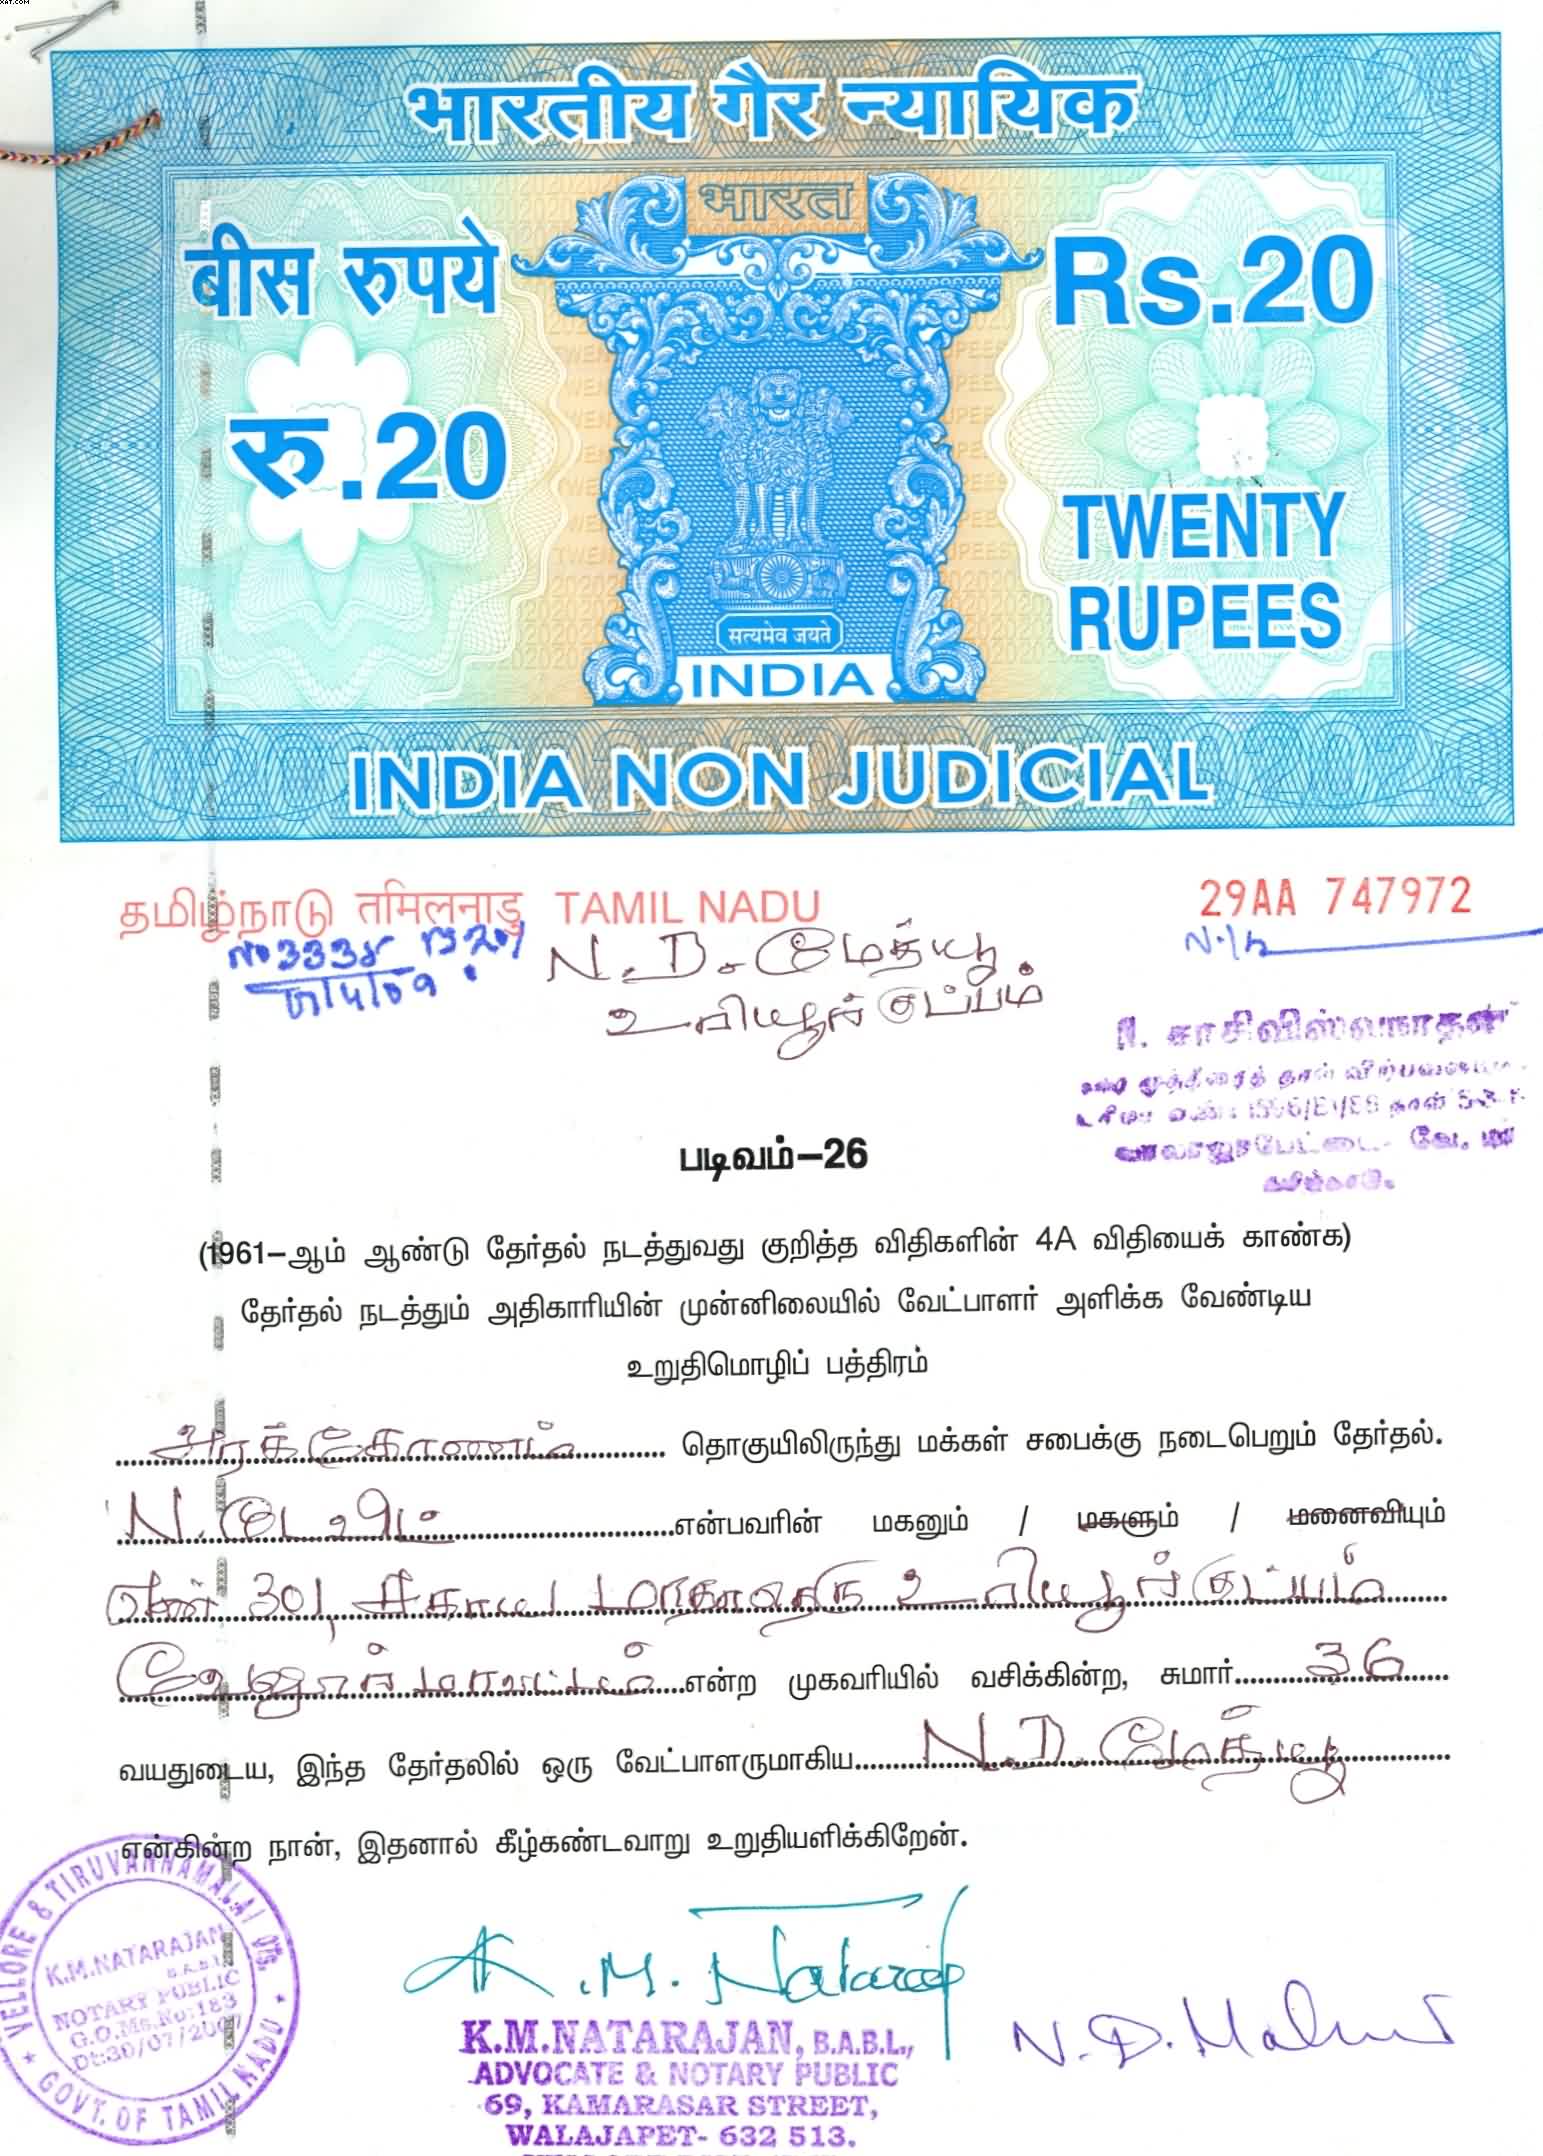 XAT.COM
भारतीय गैर न्यायिक
भारत
बीस रुपये
Rs.20
रु.20
TWENTY
RUPEES
सत्यमेव जयते
INDIA
INDIA NON JUDICIAL
தமிழ்நாடு तमिलनाडु TAMIL NADU
29AA 747972
No 3338
N.D. மேத்யூ
உளியூர் குப்பம்
சாசிவிஸ்வநாதன்
படிவம்–26
(1961–ஆம் ஆண்டு தேர்தல் நடத்துவது குறித்த விதிகளின் 4A விதியைக் காண்க)
தேர்தல் நடத்தும் அதிகாரியின் முன்னிலையில் வேட்பாளர் அளிக்க வேண்டிய
உறுதிமொழிப் பத்திரம்
அரக்கோணம் தொகுயிலிருந்து மக்கள் சபைக்கு நடைபெறும் தேர்தல்.
N. டேவிட் என்பவரின் மகனும் / மகளும் / மனைவியும்
எண் 301, சகாய மாதா தெரு
வேலூர் மாவட்டம் என்ற முகவரியில் வசிக்கின்ற, சுமார் 36
வயதுடைய, இந்த தேர்தலில் ஒரு வேட்பாளருமாகிய N.D. மேத்யூ
என்கின்ற நான், இதனால் கீழ்கண்டவாறு உறுதியளிக்கிறேன்.
VELLORE & TIRUVANNAMALAI Dts.
K.M.NATARAJAN
B.A.B.L.
NOTARY PUBLIC
G.O.Ms.No:183
Dt:30/07/2007
GOVT. OF TAMIL NADU
K.M. Nataraj
K.M.NATARAJAN, B.A.B.L.,
ADVOCATE & NOTARY PUBLIC
69, KAMARASAR STREET,
WALAJAPET- 632 513.
N. D.